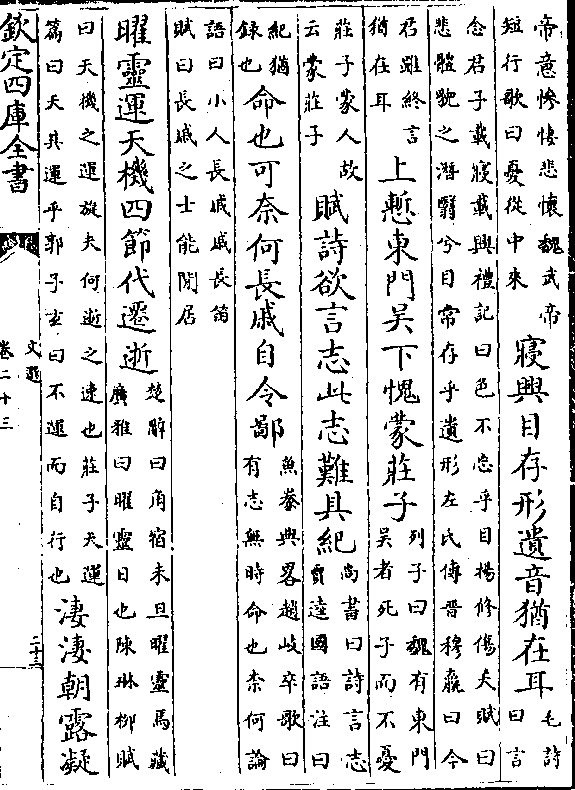 帝意慘悽悲懷魏武帝
短行歌曰憂從中來
寢興目存形遺音猶在耳
毛詩
曰言
念君子載寢載興禮記曰色不忘乎目揚修傷夫賦曰
悲體貌之潛翳兮目常存乎遺形左氏傳晉穆嬴曰今
君雖終言
猶在耳
上慙東門吳下愧蒙莊子
列子曰魏有東門
吳者死子而不憂
莊子蒙人故
云蒙莊子
賦詩欲言志此志難具紀
尚書曰詩言志
賈逵國語注曰
紀猶
録也
命也可奈何長戚自令鄙
魚豢典畧趙岐卒歌曰
有志無時命也柰何論
語曰小人長戚戚長笛
賦曰長戚之士能閒居
曜靈運天機四節代遷逝
楚辭曰角宿未旦曜靈焉藏
廣雅曰曜靈日也陳琳柳賦
曰天機之運旋夫何逝之速也莊子天運
篇曰天其運乎郭子玄曰不運而自行也
淒淒朝露凝
欽定四庫全書
文選
卷二十三
二十三